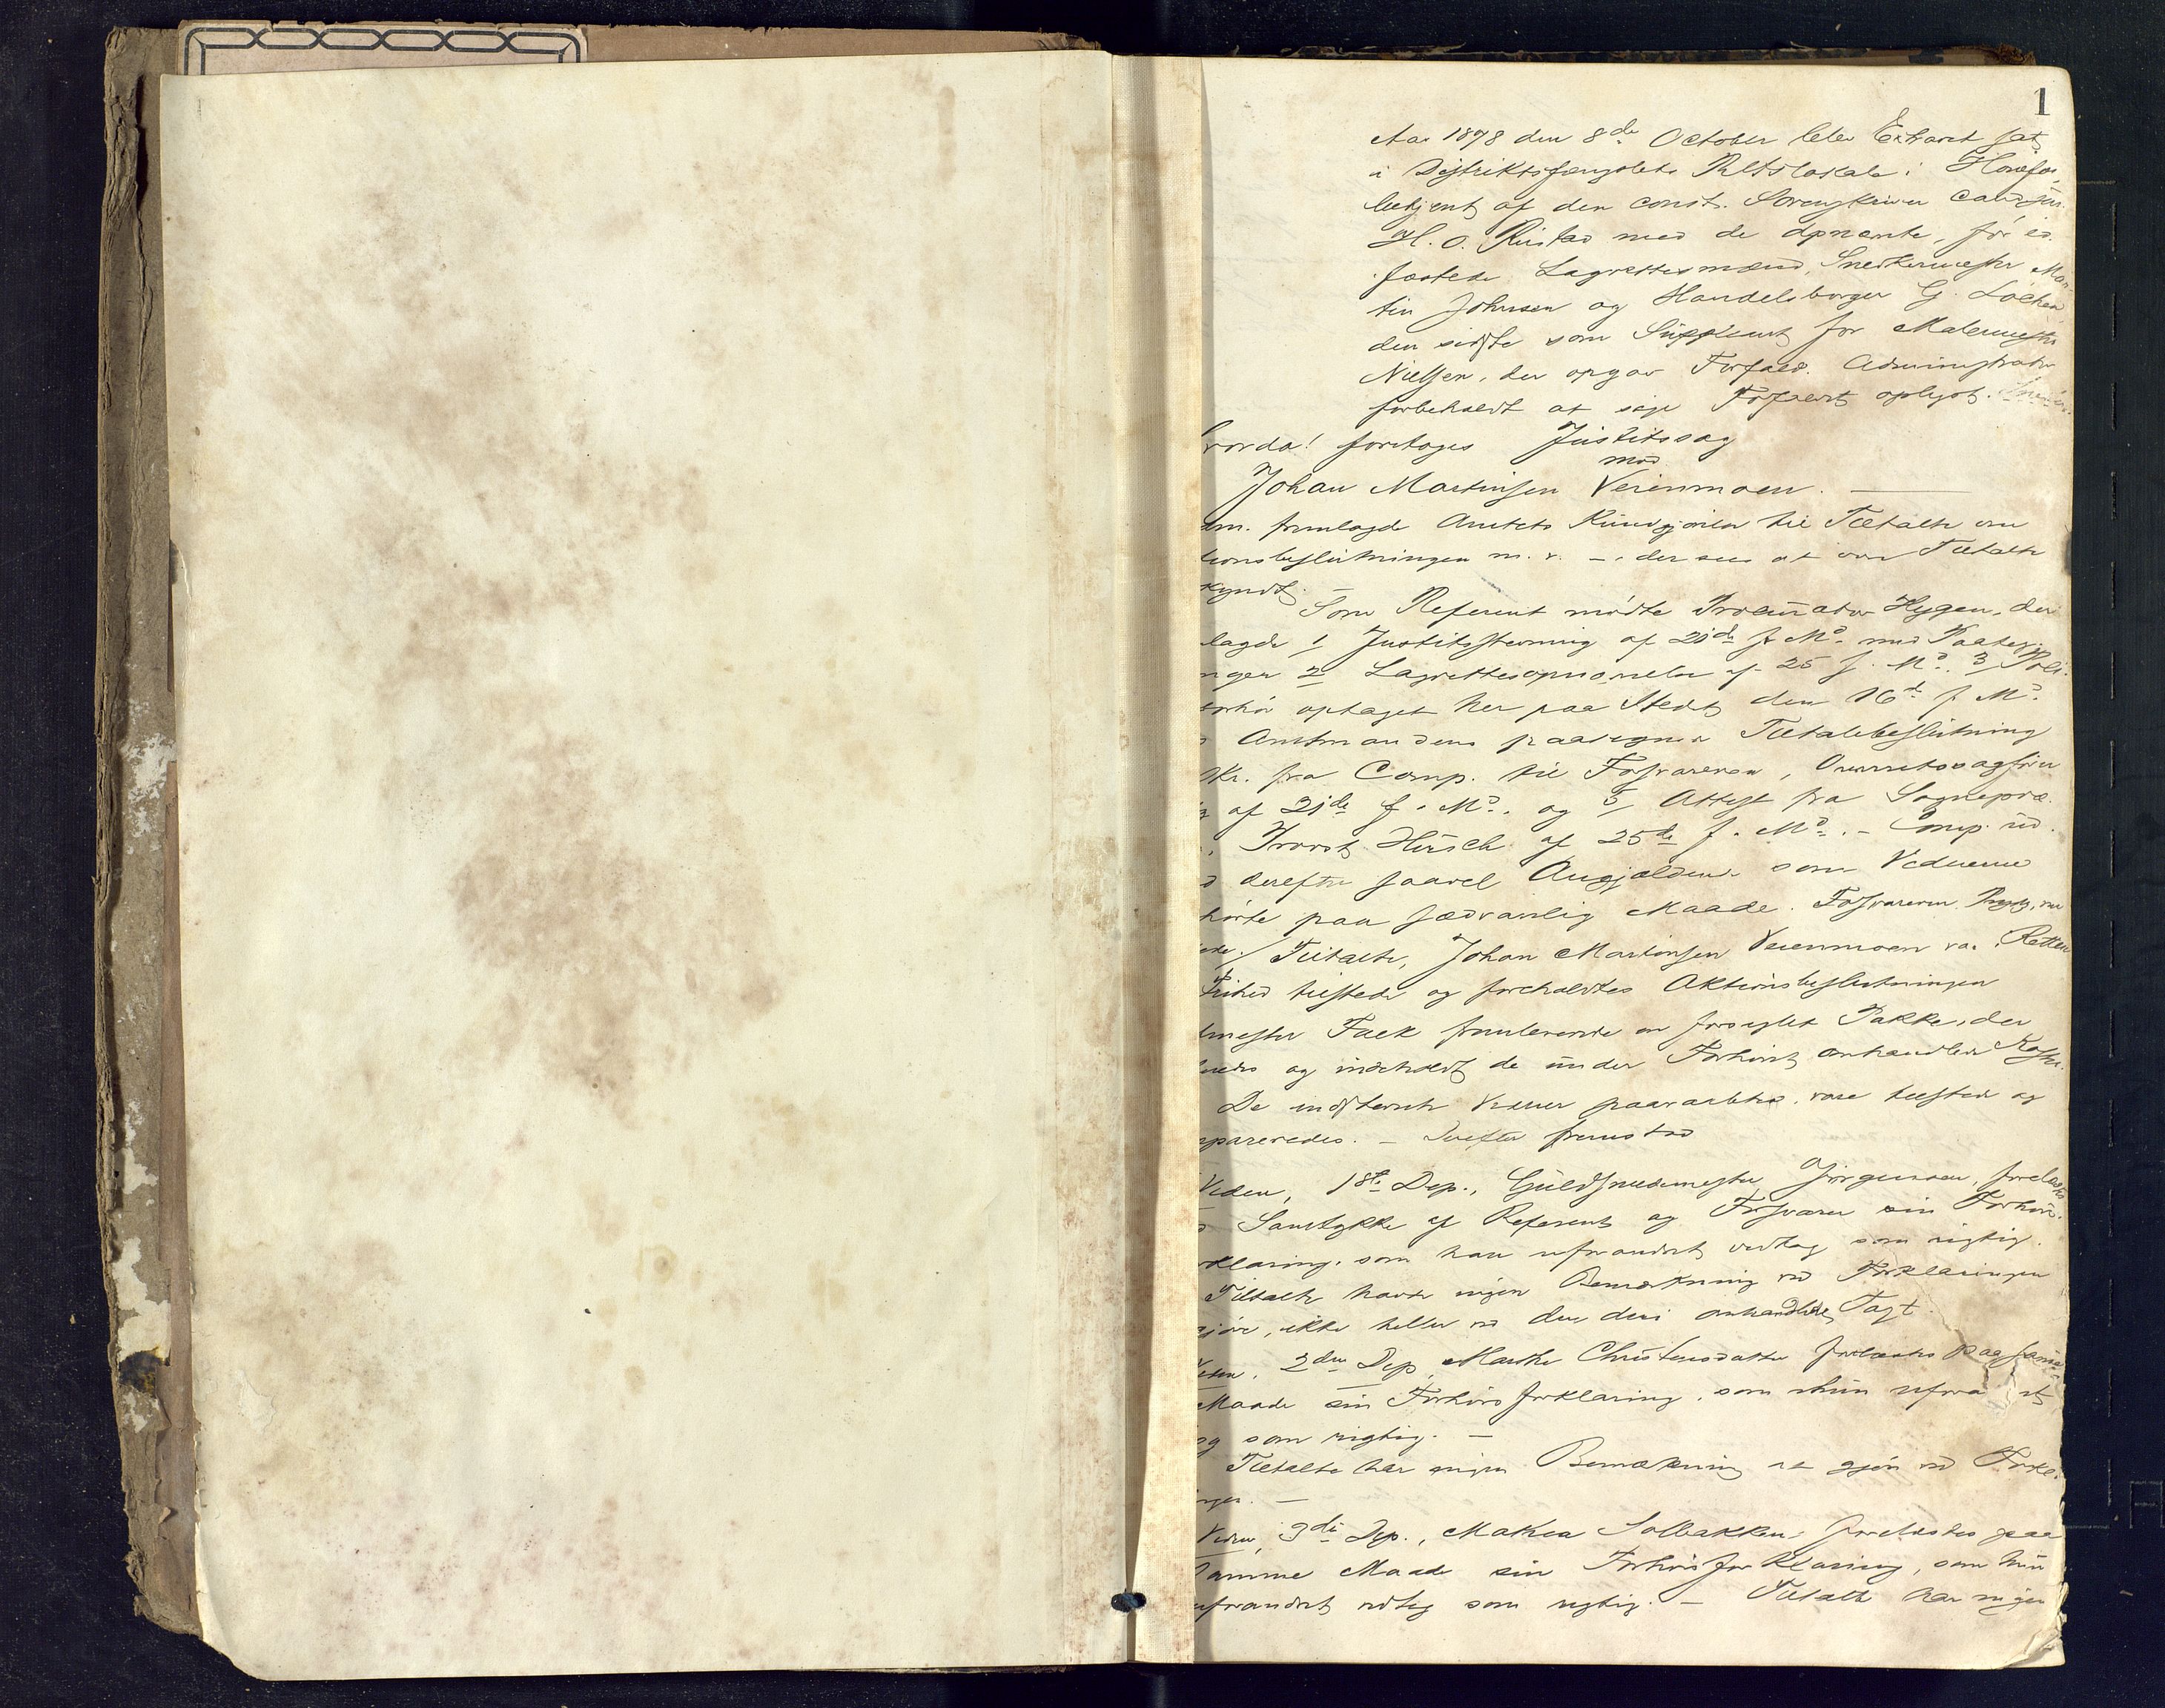 1
Aar 1898 den 8de October blev Extraret sat
i Distriktsfængslets Retslokale i Hønefos,
betjent af den const. Sorenskriver cand. jur.
H. O. Rustad med de opnævnte, før ed-
fæstede Lagrettesmænd, Snedkermester Mar-
tin Johnsen og Handelsborger G. Løchen,
den sidste som Suppleant for Malermester
Nielsen, der opgav Forfald. Administrator
forbeholdt at søge Forfaldet oplyst.
hvorda! foretoges Justitssag
mod
Johan Martinsen Veienmoen.
Adm. fremlagde Amtets Kundgjørelse til Tiltalte om
tionsbeslutningen m. v. -, der sees at være Tiltalte
kyndt.
Som Referent mødte Procurator Hygen, der
lagde 1 Justitsstevning af 21de f. Md. med Paateg-
nger 2 Lagrettesopnævnelse af 25 f. Md. 3 Poli-
forhør optaget her paa Stedet den 16de f. Md.
Amtmandens paategnede Tiltalebeslutning
Skr. fra Comp. til Forsvareren, Overretssagfører
af 21de f. Md. og 5/ Attest fra Sognepræ-
, Provst Hirsch af 25de f. Md. - Comp. ud-
d derefter saavel Angjældende som Vidnerne
hørte paa sædvanlig Maade. Forsvareren var
ede./ Tiltalte, Johan Martinsen Veienmoen var i Retten
Frihed tilstede og foreholdtes Aktionsbeslutningen
mester Falk fremleverede en forseglet Pakke, der
nedes og indeholdt de under Forhøret omhandlede Koster.
De indstevnte Vidner paaraabtes, vare tilstede og
separeredes. - Derefter fremstod
Vidne, 1ste Dep., Guldsmedmester Jørgensen, forelæstes
d Samtykke af Referent og Forsvarer sin Forhørs-
rklaring, som han uforandret vedtog som rigtig.
Tiltalte havde ingen Bemærkning ved Forklaringen
gjøre, ikke heller ved den deri omhandlede Taxt.
Vidne, 2den Dep. Marthe Christensdatter forelæstes paa samme
Maade sin Forhørsforklaring, som hun ufora et
og som rigtig. -
Tiltalte har ingen Bemærkning at gjøre ved Forkla-
ingen. -
Vidne, 3die Dep., Makea Solbakken forelæstes paa
samme Maade sin Forhørsforklaring, som hun
uforandret vedtog som rigtig. - Tiltalte har ingen